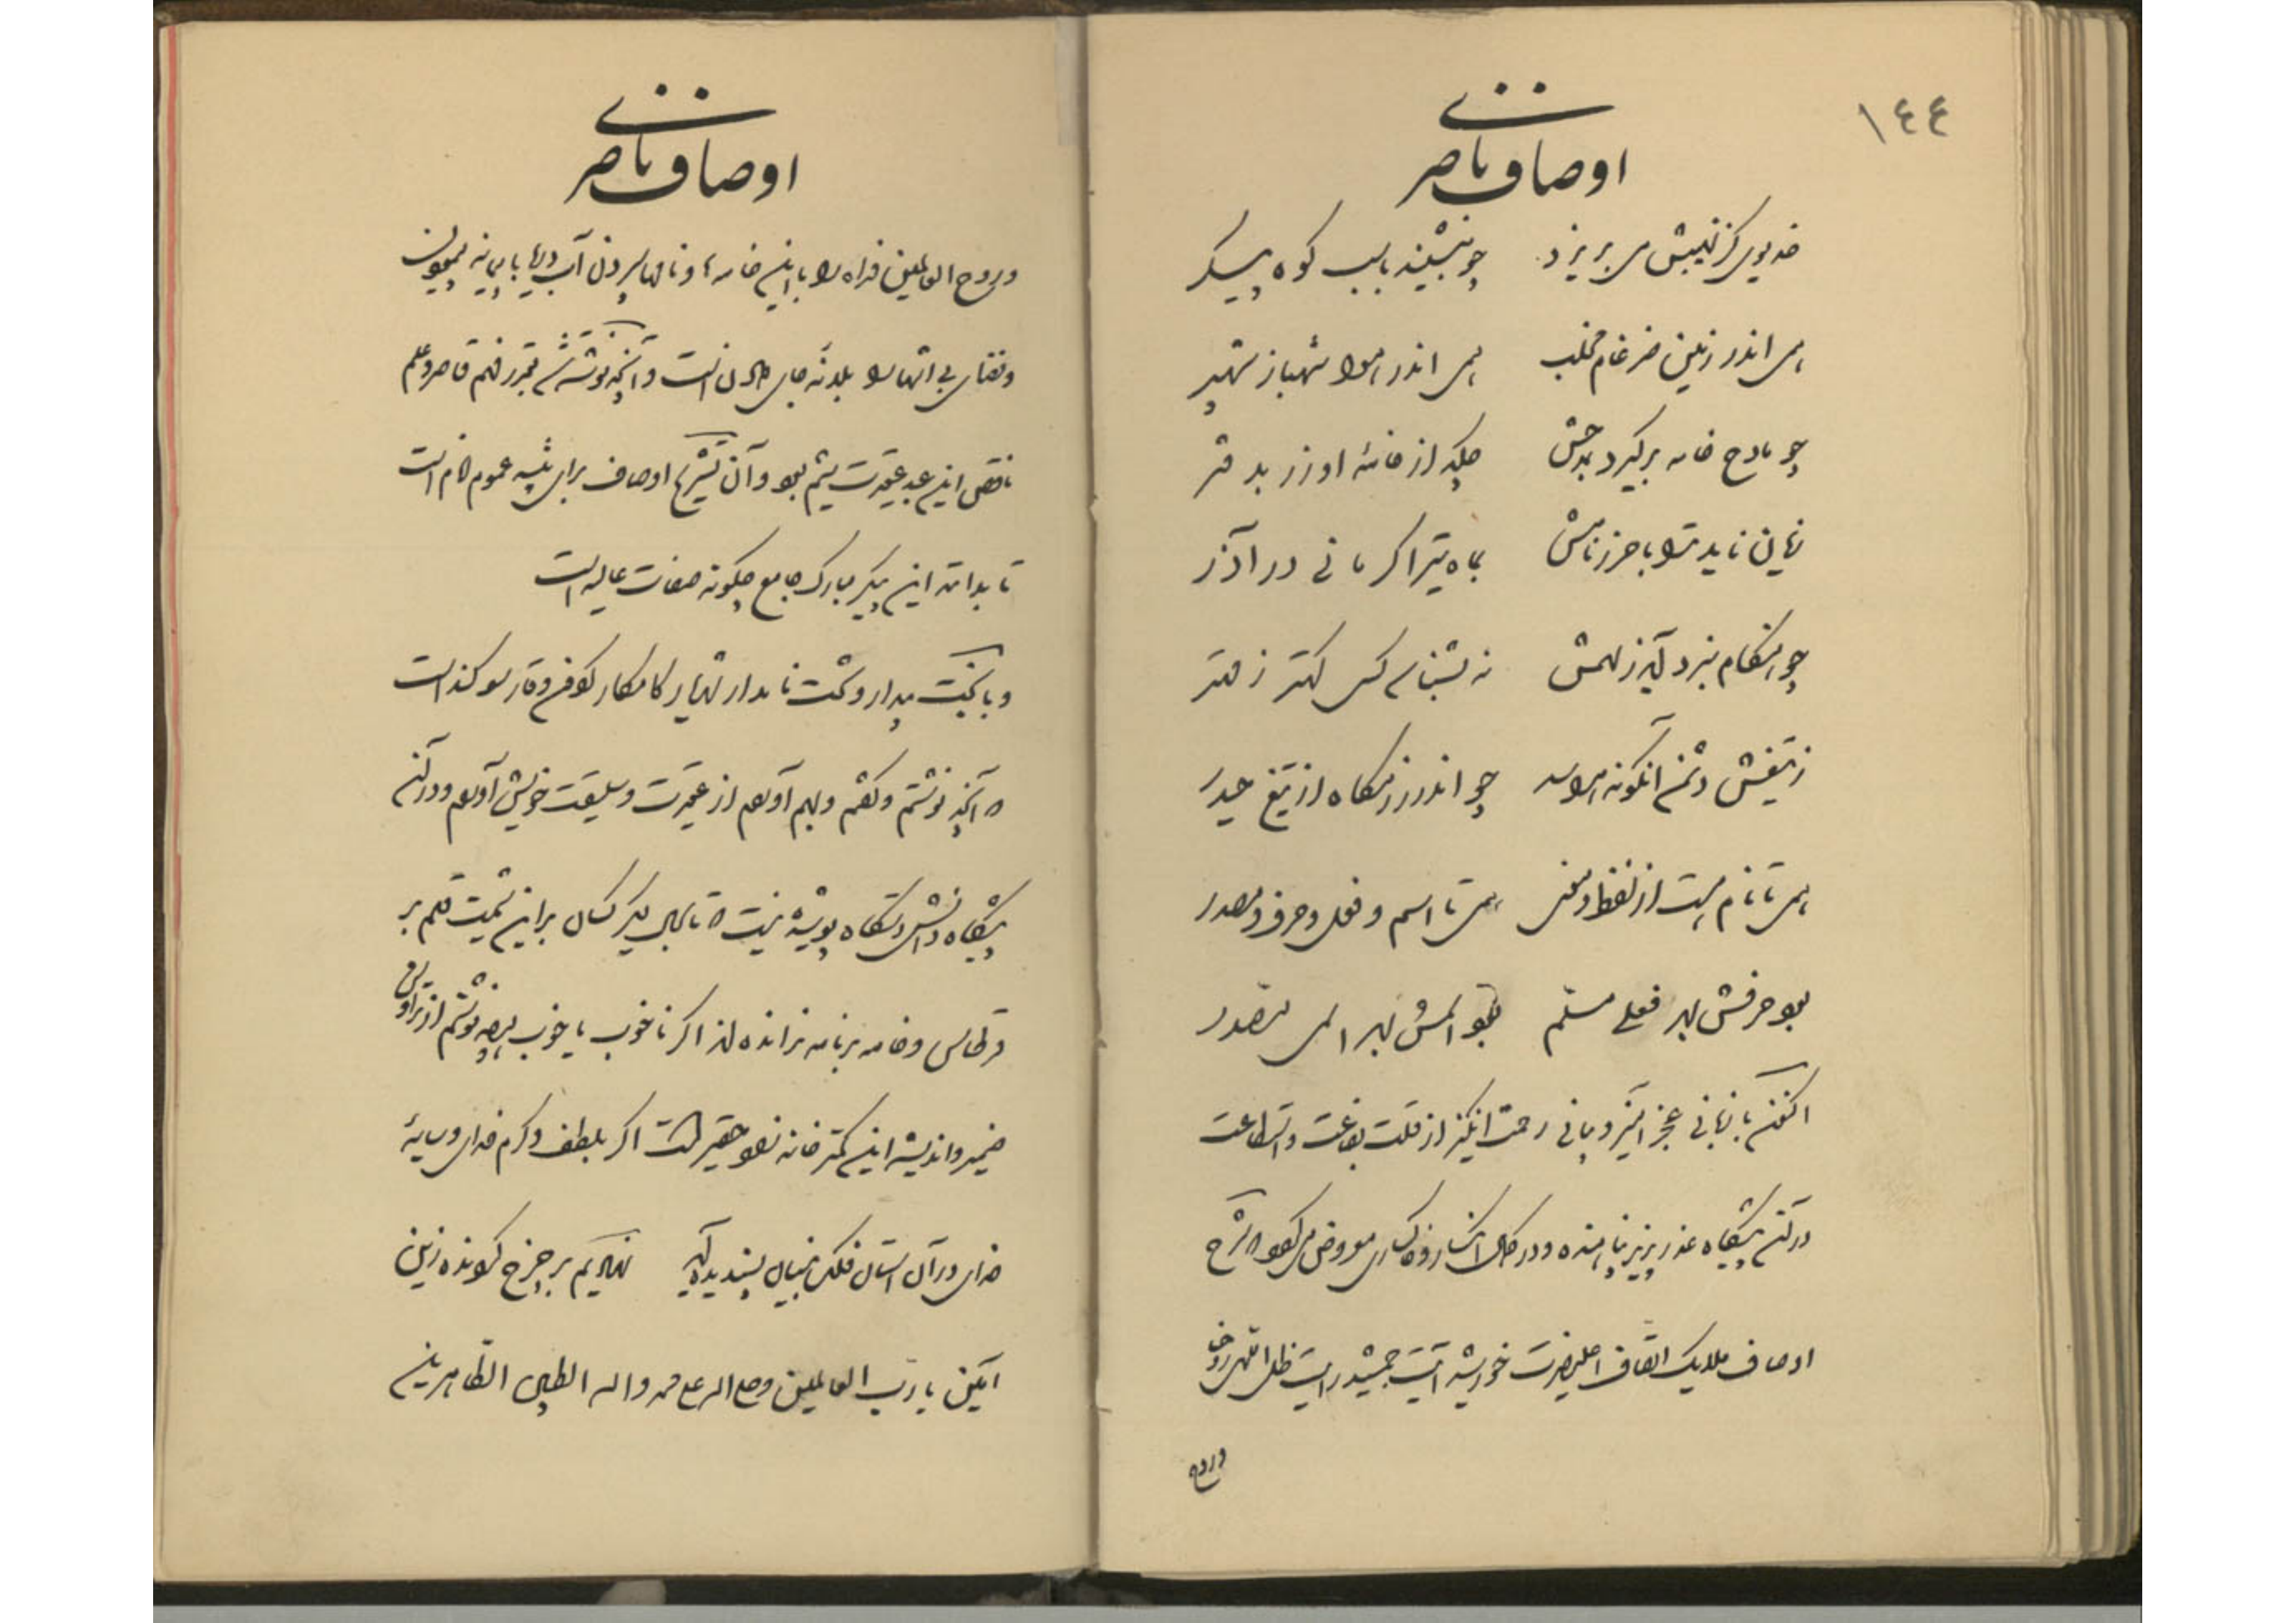 ١٤٤
اوصاف ناصری
خدیوی کز نهیبش می بریزد چو بنشیند باسب کوه پیکر
همی اندر زمین ضرغام مخلب همی اندر هوا شهباز شهپر
چو مادح خامه برگیرد بمدحش چکد از خامهٔ او زر بدفتر
زیان ناید ترا با حرز نامش بماه تیر اگر مانی در آذر
چو هنگام نبرد آید ز سهمش نه بشناسد کس کهتر ز مهتر
ز تیغش دشمن آنگونه هراسد چو اندر رزمگاه از تیغ حیدر
همی تا نام هست از لفظ و معنی همی تا اسم و فعل و حرف و مصدر
بود حرفش بهر فعلی مسلم بود اسمش بهر اسمی مصدر
اکنون با زبانی عجز آمیز و بیانی رحمت انگیز از قلت بضاعت و استطاعت
در آن پیشگاه عذر پذیر پناهنده و در کمال انکسار و خاکساری معروض میگردد که شرح
اوصاف ملایک اتصاف اعلیحضرت خورشید آیت جمشید رایت ظل اللهی روحی
و روح
اوصاف ناصری
و روح العالمین فداه را با این خامه و نامها سپردن آب دریا با پیمانه پیمودن
و فضای بی انتها را بلدنه جای دادن است و آنچه نوشته شد بقدر فهم قاصر و علم
ناقص این عبد عقیدت شیم بود و آن تشریح اوصاف برای تنبیه عموم انام است
تا بدانند این پیکر مبارک جامع چگونه صفات عالیه است
و با بخت بیدار و تخت نامدار شهریار کامکار گردون وقار سوگند است
که آنچه نوشتم و گفتم و بهم آوردم از عقیدت و سلیقت خویش آوردم و در آن
پیشگاه دانش دستگاه پوشیده نیست که تا بحال دیگر کسان بر این سمت قلم بر
قرطاس و خامه بر نامه نرانده اند اگر ناخوب یا خوب هرچه نوشتم از تراوش
ضمیر و اندیشه این کمتر خانه زاد حقیر است اگر بلطف و کرم خدای و سایهٔ
خدای در آن آستان فلک بنیان پسندیده آید نهد پایم بر چرخ گردنده زین
آمین یا رب العالمین و صلی الله علی محمد و اله الطیبین الطاهرین